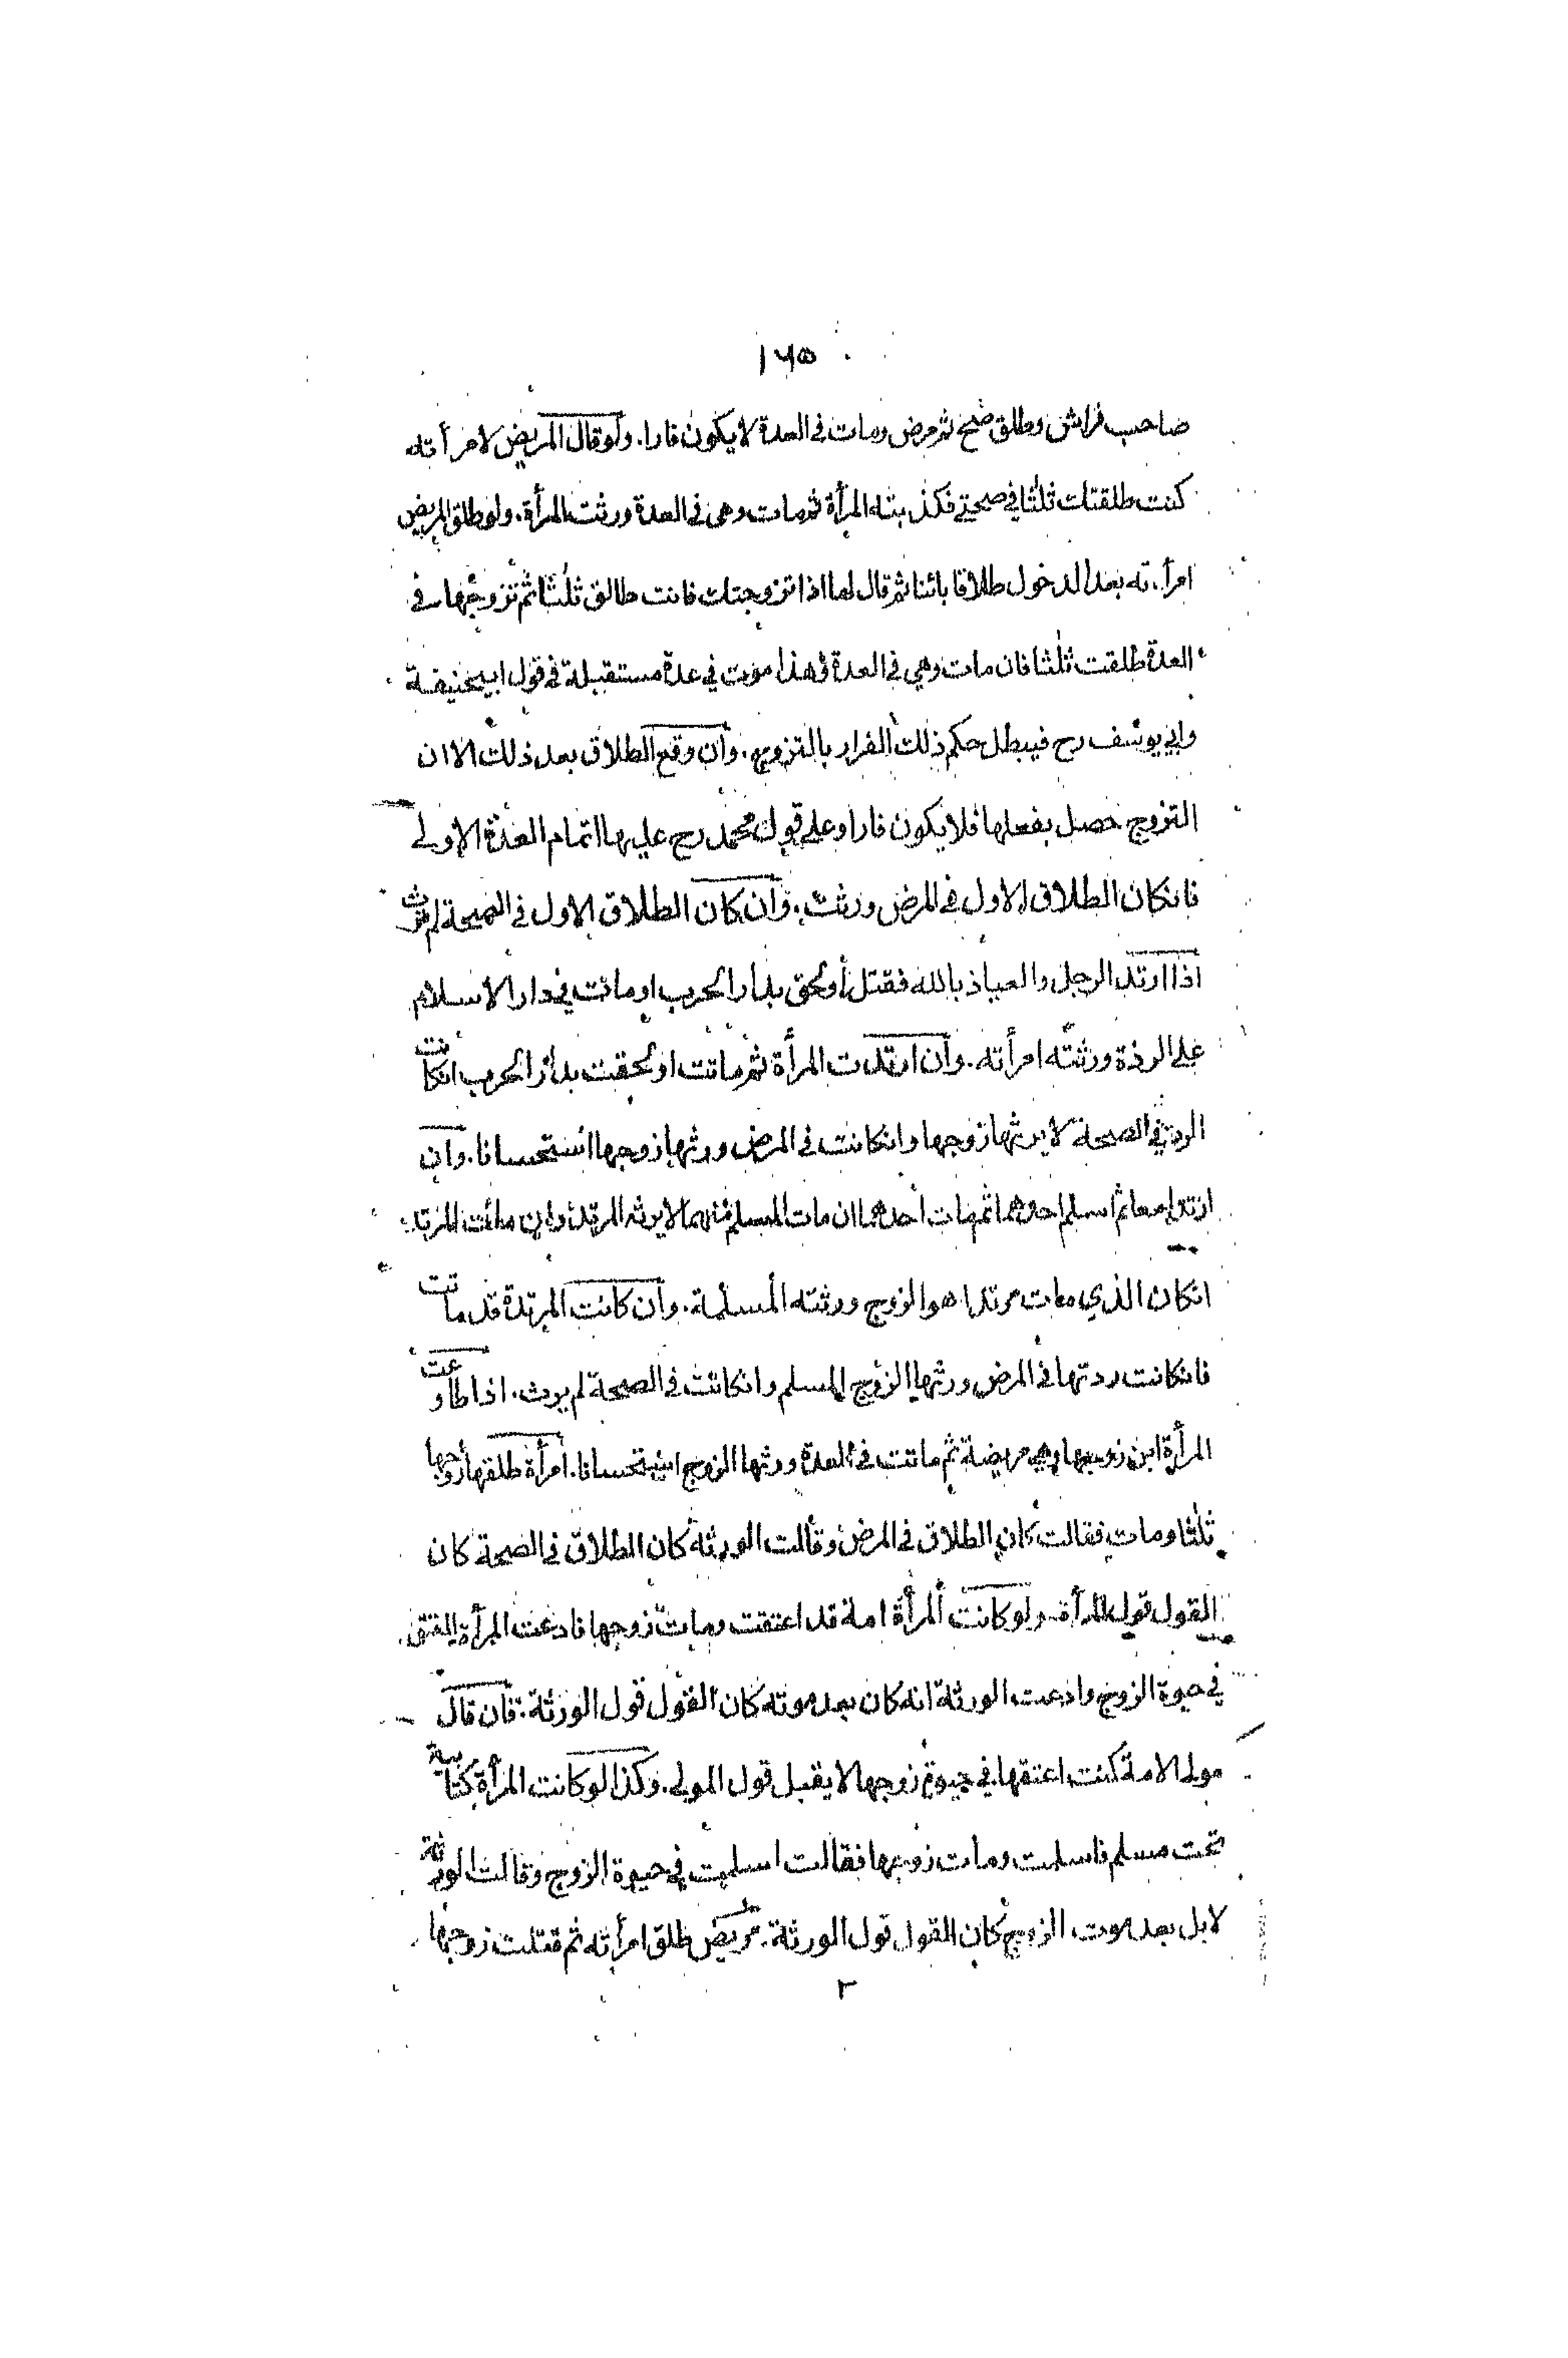 ١٧٥
صاحب فراش وطلق صح ثم مرض ومات في العدة لا يكون فارا. ولو قال المريض لامرأته
كنت طلقتك ثلثا في صحتي فكذبته المرأة ثم مات وهي في العدة ورثت المرأة. ولو طلق المريض
امرأته بعد الدخول طلاقا بائنا ثم قال لها اذا تزوجتك فانت طالق ثلثا ثم تزوجها في
العدة طلقت ثلثا فان مات وهي في العدة فهذا موت في عدة مستقبلة في قول ابيحنيفة
وابي يوسف رح فيبطل حكم ذلك الفرار بالتزوج. وان وقع الطلاق بعد ذلك الا ان
التزوج حصل بفعلها فلا يكون فارا وعلى قول محمد رح عليها اتمام العدة الاولى
فانكان الطلاق الاول في المرض ورثت. وان كان الطلاق الاول في الصحة لم ترث
اذا ارتد الرجل والعياذ بالله فقتل أو لحق بدار الحرب او مات في دار الاسلام
على الردة ورثته امرأته. وان ارتدت المرأة ثم ماتت او لحقت بدار الحرب انكانت
الردة في الصحة لا يرثها زوجها وانكانت في المرض ورثها زوجها استحسانا. وان
ارتدا معا ثم اسلم احدهما ثم مات أحدهما ان مات المسلم منهما لا يرثه المرتد وان مات المرتد
انكان الذي مات مرتدا هو الزوج ورثته المسلمة. وان كانت المرتدة قد ماتت
فانكانت ردتها في المرض ورثها الزوج المسلم وانكانت في الصحة لم يرث. اذا طاوعت
المرأة ابن زوجها وهي مريضة ثم ماتت في العدة ورثها الزوج استحسانا. امرأة طلقها زوجها
ثلثا ومات فقالت كان الطلاق في المرض وقالت الورثة كان الطلاق في الصحة كان
القول قول المرأة ولو كانت المرأة امة قد اعتقت ومات زوجها فادعت المرأة العتق
في حيوة الزوج وادعت الورثة انه كان بعد موته كان القول قول الورثة. فان قال
مولى الامة كنت اعتقها في حيوة زوجها لا يقبل قول المولى. وكذا لو كانت المرأة كتابية
تحت مسلم فاسلمت ومات زوجها فقالت اسلمت في حيوة الزوج وقالت الورثة
لا بل بعد موت الزوج كان القول قول الورثة. مريض طلق امرأته ثم قتلت زوجها
٢